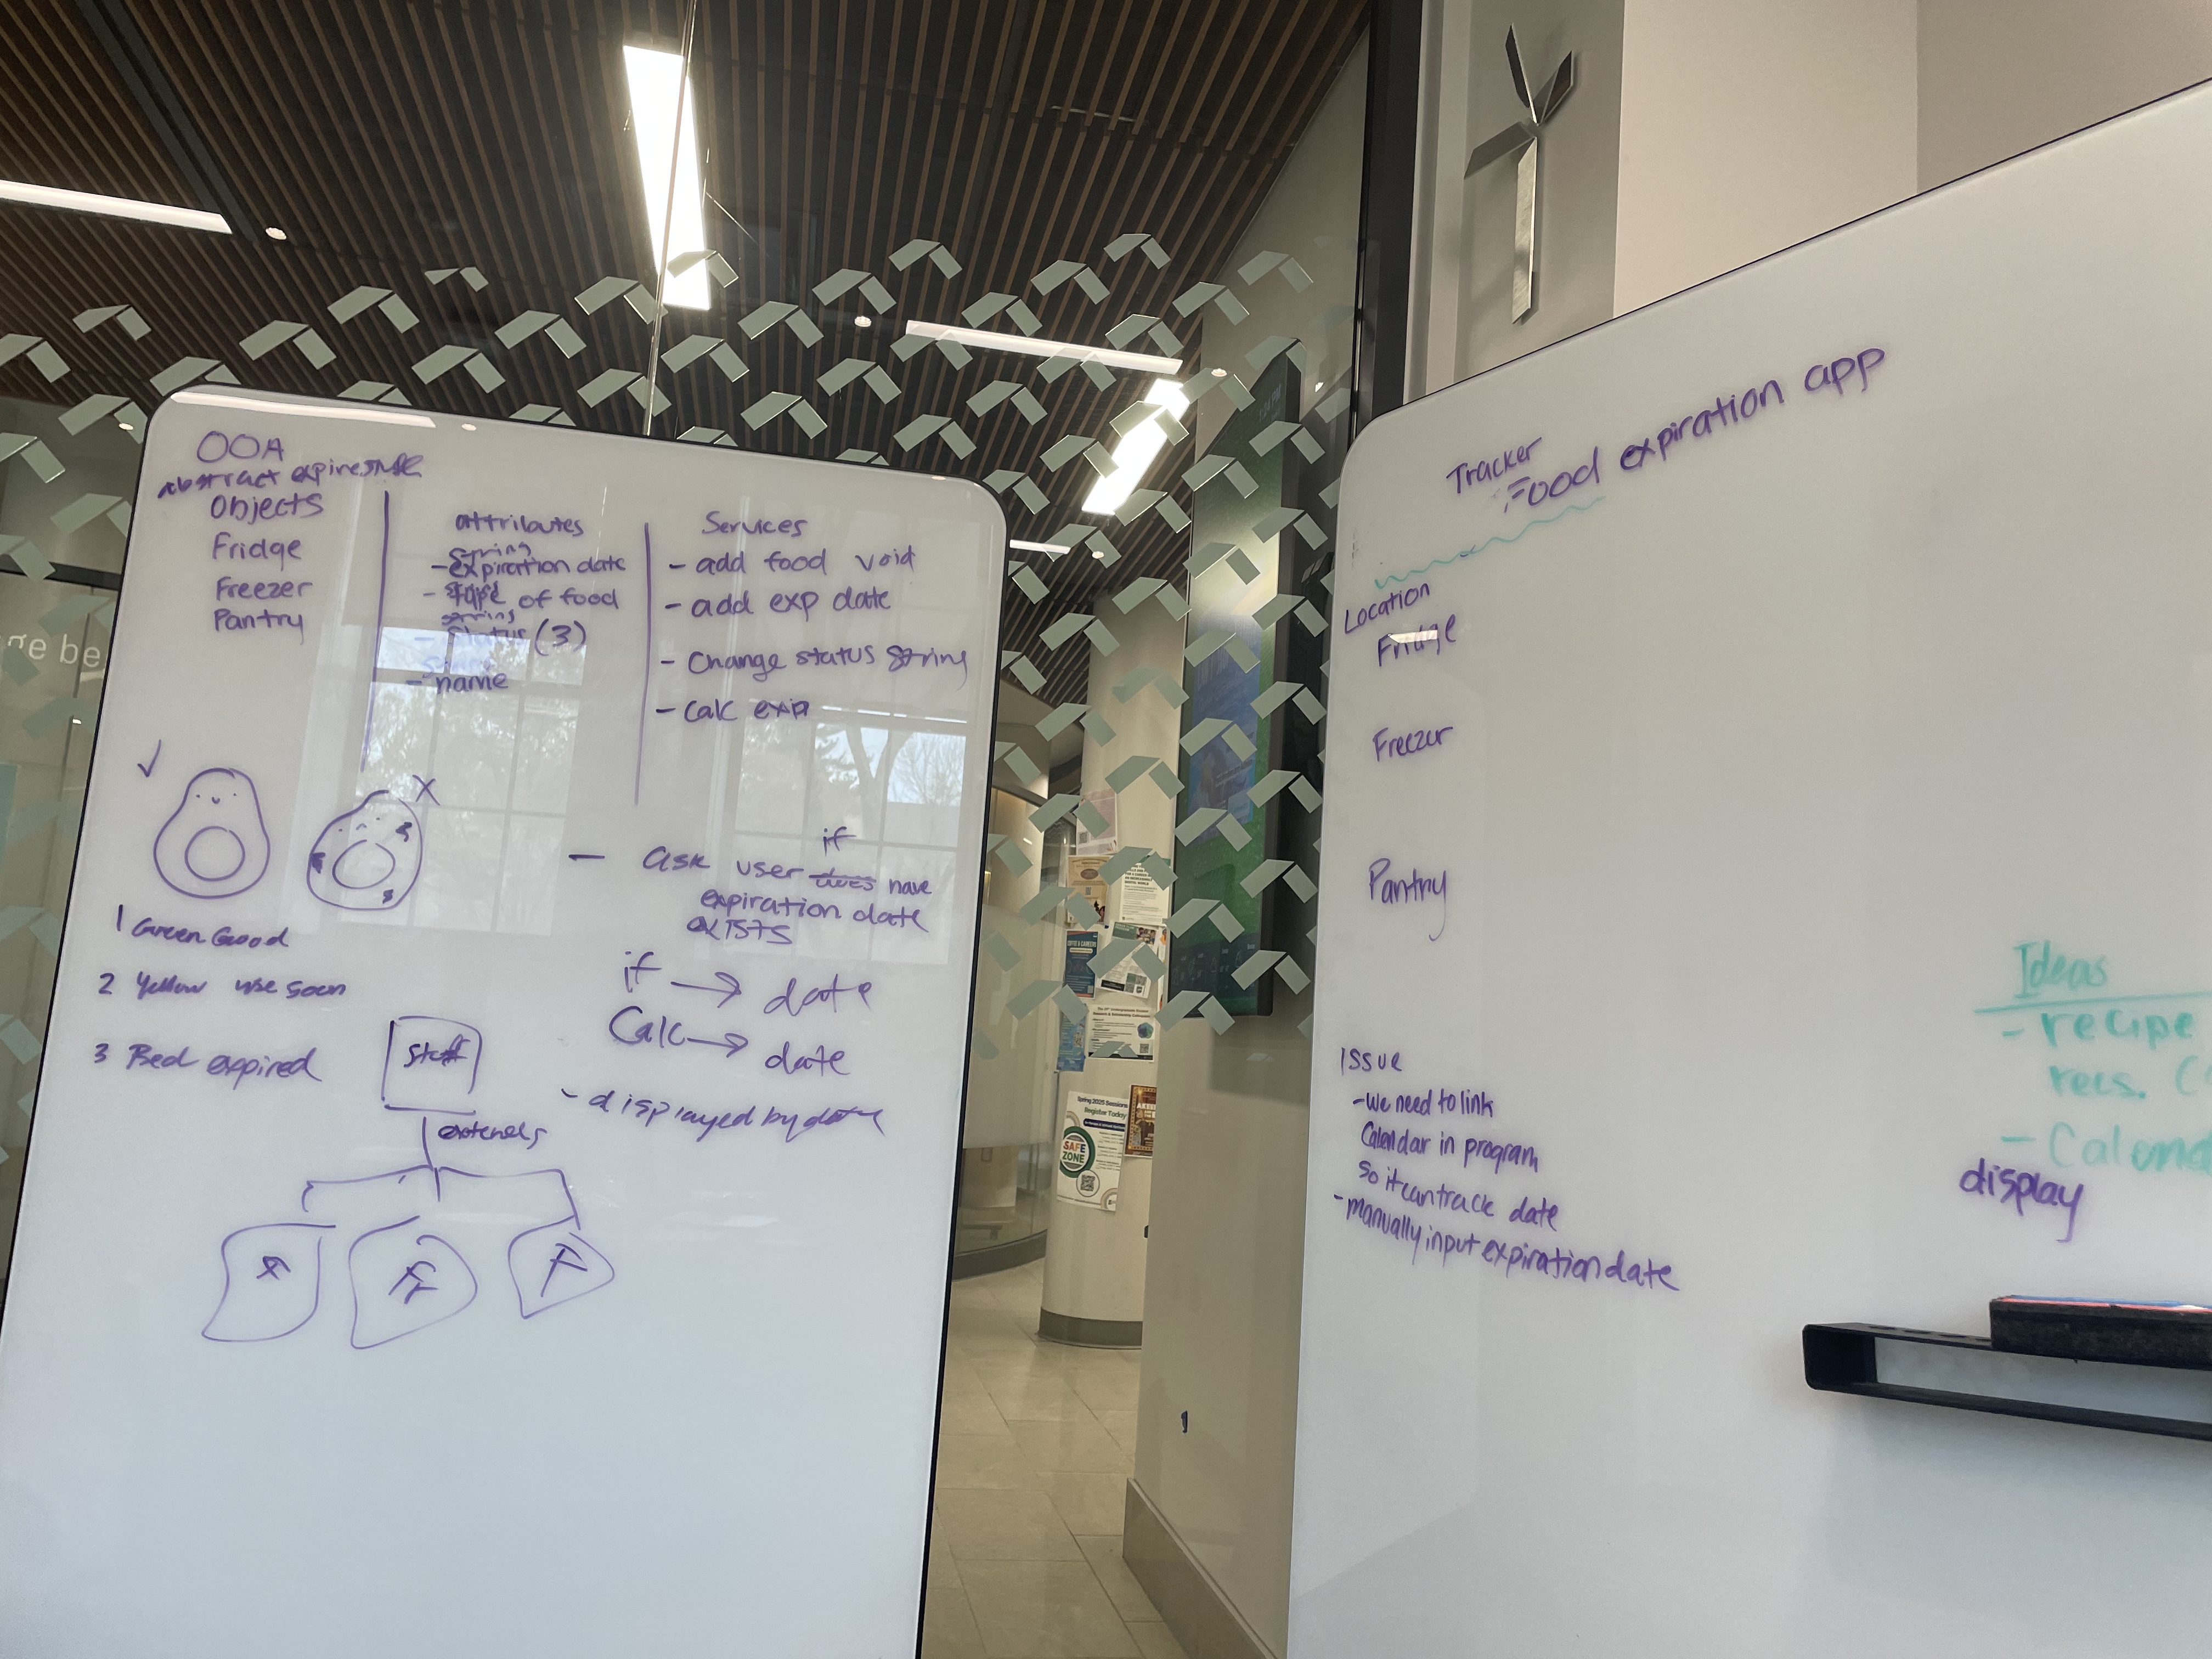 OOA
abstract
Objects
Fridge
Freezer
Pantry
attributes
string
- expiration date
- type of food
string
- status (3)
- name
Services
- add food void
- add exp date
- Change status String
- Calc exp
✓
X
1 Green Good
2 Yellow use soon
3 Red expired
- ask user if does have
expiration date
exists
if → date
Calc → date
- displayed by date
Stuff
extends
F
ge be
SAFE
ZONE
Spring 2025 Sessions
Register Today
Tracker
Food expiration app
Location
Fridge
Freezer
Pantry
Issue
- we need to link
Calendar in program
so it can track date
- manually input expiration date
Ideas
- recipe
recs.
- Calend
display